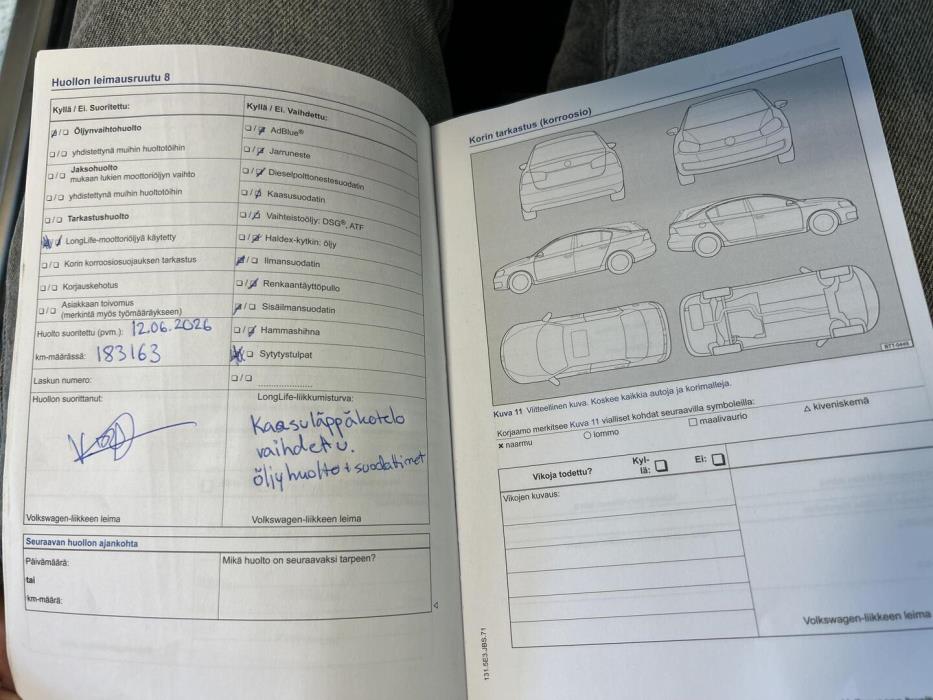 Huollon leimausruutu 8
Kyllä / Ei. Suoritettu:
❑/❑ Öljynvaihtohuolto
❑/❑ yhdistettynä muihin huoltotöihin
❑/❑ Jaksohuolto
mukaan lukien moottoriöljyn vaihto
❑/❑ yhdistettynä muihin huoltotöihin
❑/❑ Tarkastushuolto
❑/❑ LongLife-moottoriöljyä käytetty
❑/❑ Korin korroosiosuojauksen tarkastus
❑/❑ Korjauskehotus
❑/❑ Asiakkaan toivomus
(merkintä myös työmääräykseen)
Huolto suoritettu (pvm.): 12.06.2026
km-määrässä: 183163
Laskun numero:
Huollon suorittanut:
Volkswagen-liikkeen leima
Kyllä / Ei. Vaihdettu:
❑/❑ AdBlue®
❑/❑ Jarruneste
❑/❑ Dieselpolttonestesuodatin
❑/❑ Kaasusuodatin
❑/❑ Vaihteistoöljy: DSG®, ATF
❑/❑ Haldex-kytkin: öljy
❑/❑ Ilmansuodatin
❑/❑ Renkaantäyttöpullo
❑/❑ Sisäilmansuodatin
❑/❑ Hammashihna
❑/❑ Sytytystulpat
❑/❑ ....................
LongLife-liikkumisturva:
Kaasuläppäkotelo
vaihdettu.
öljyhuolto + suodattimet
Volkswagen-liikkeen leima
Seuraavan huollon ajankohta
Päivämäärä:
tai
km-määrä:
Mikä huolto on seuraavaksi tarpeen?
Korin tarkastus (korroosio)
BTT-0449
Kuva 11 Viitteellinen kuva. Koskee kaikkia autoja ja korimalleja.
Korjaamo merkitsee Kuva 11 vialliset kohdat seuraavilla symboleilla:
× naarmu ○ lommo □ maalivaurio △ kiveniskemä
Vikoja todettu? Kyl-
lä: ❑ Ei: ❑
Vikojen kuvaus:
Volkswagen-liikkeen leima
131.5E3.JBS.71